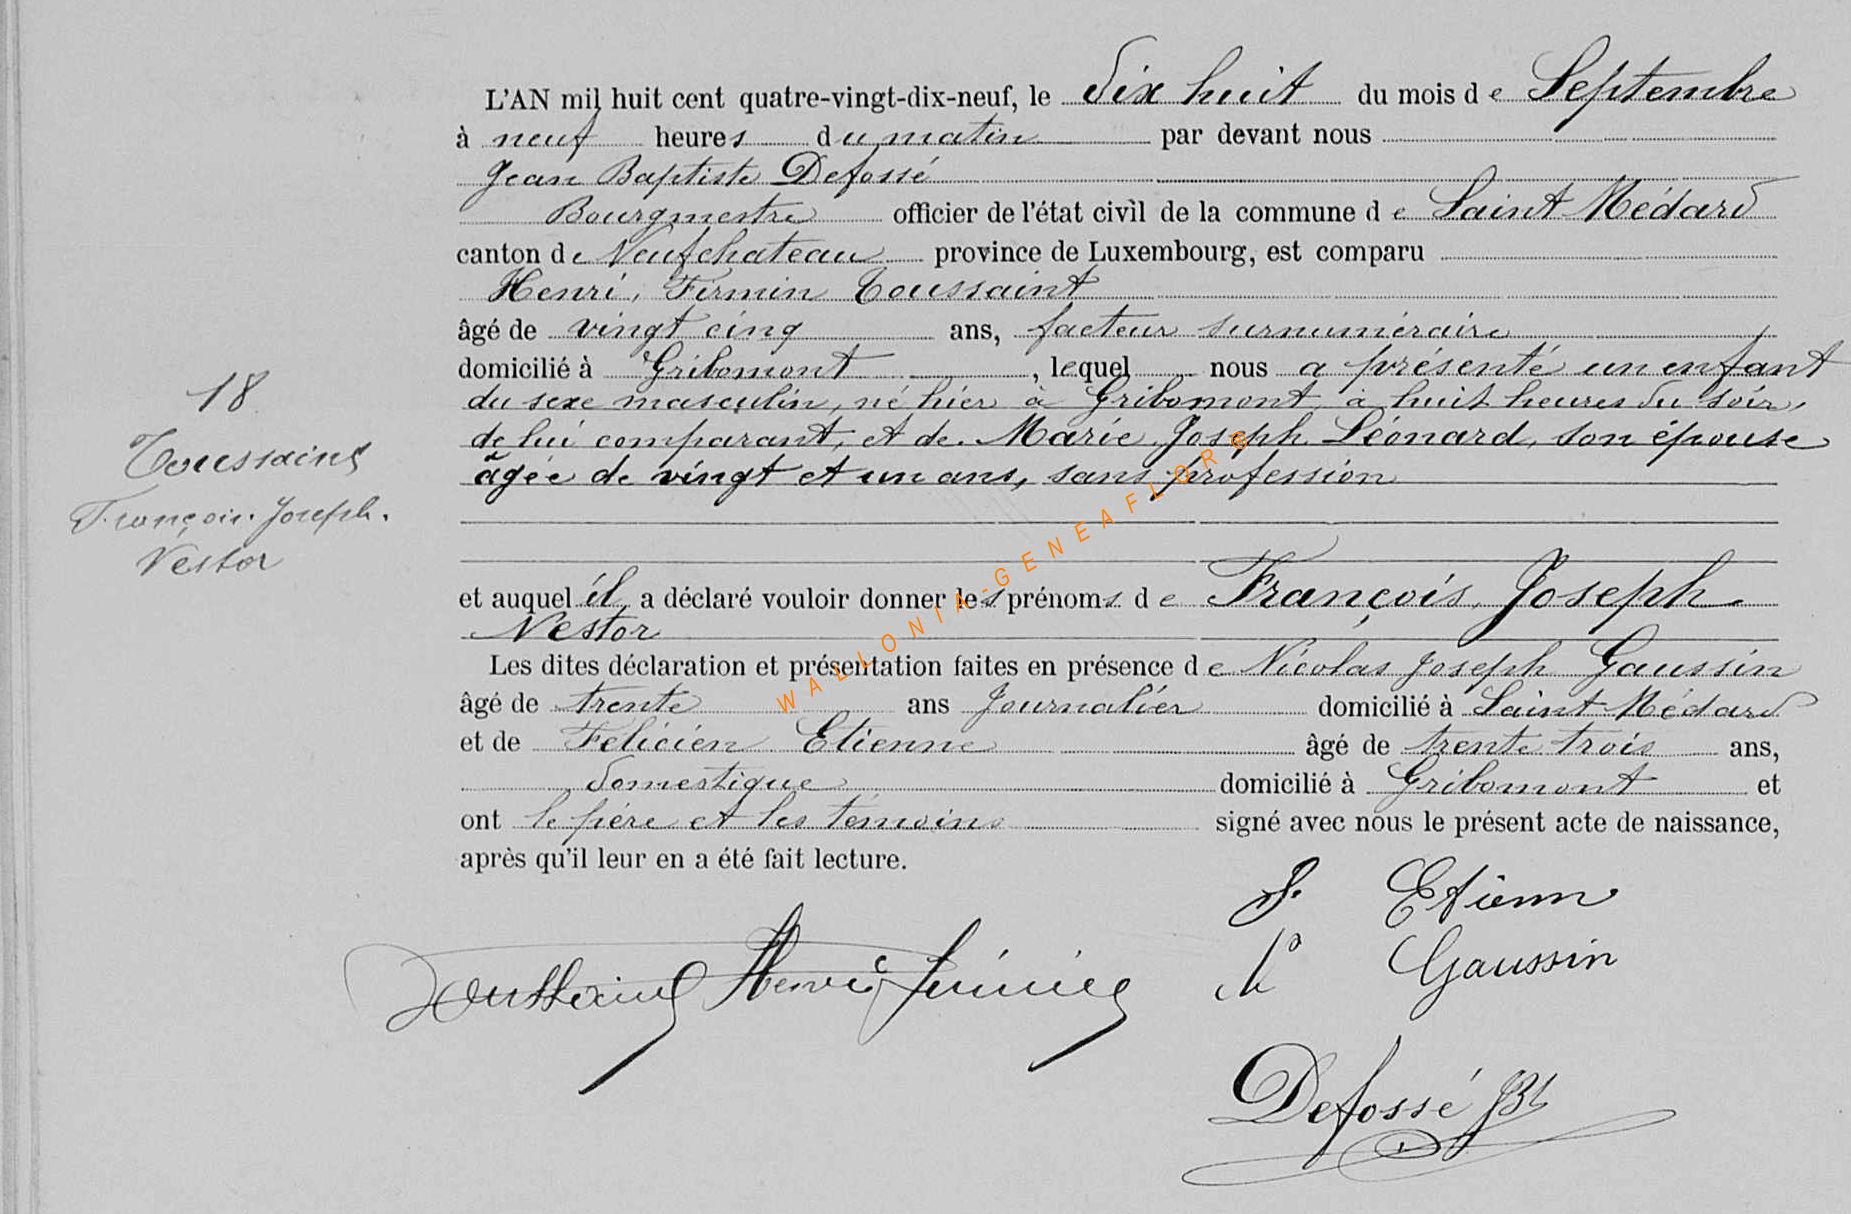 L'AN mil huit cent quatre-vingt-dix-neuf, le dix huit du mois de Septembre
à neuf heures du matin par devant nous
Jean Baptiste Defossé
Bourgmestre officier de l'état civil de la commune de Saint Médard
canton de Neufchateau province de Luxembourg, est comparu
Henri, Firmin Toussaint
âgé de vingt cinq ans, facteur surnuméraire
domicilié à Gribomont, lequel nous a présenté un enfant
du sexe masculin, né hier à Gribomont à huit heures du soir,
de lui comparant, et de Marie Joseph Léonard, son épouse
âgée de vingt et un ans, sans profession
et auquel il a déclaré vouloir donner les prénoms de François, Joseph
Nestor
Les dites déclaration et présentation faites en présence de Nicolas Joseph Gaussin
âgé de trente ans Journalier domicilié à Saint Médard
et de Félicien Etienne âgé de trente trois ans,
domestique domicilié à Gribomont et
ont le père et les témoins signé avec nous le présent acte de naissance,
après qu'il leur en a été fait lecture.
18
Toussaint
François. Joseph.
Nestor
WALLONIA-GENEAFLOR®
F. Etienn
Toussaint Henri Firmin
N Gaussin
Defossé JBt